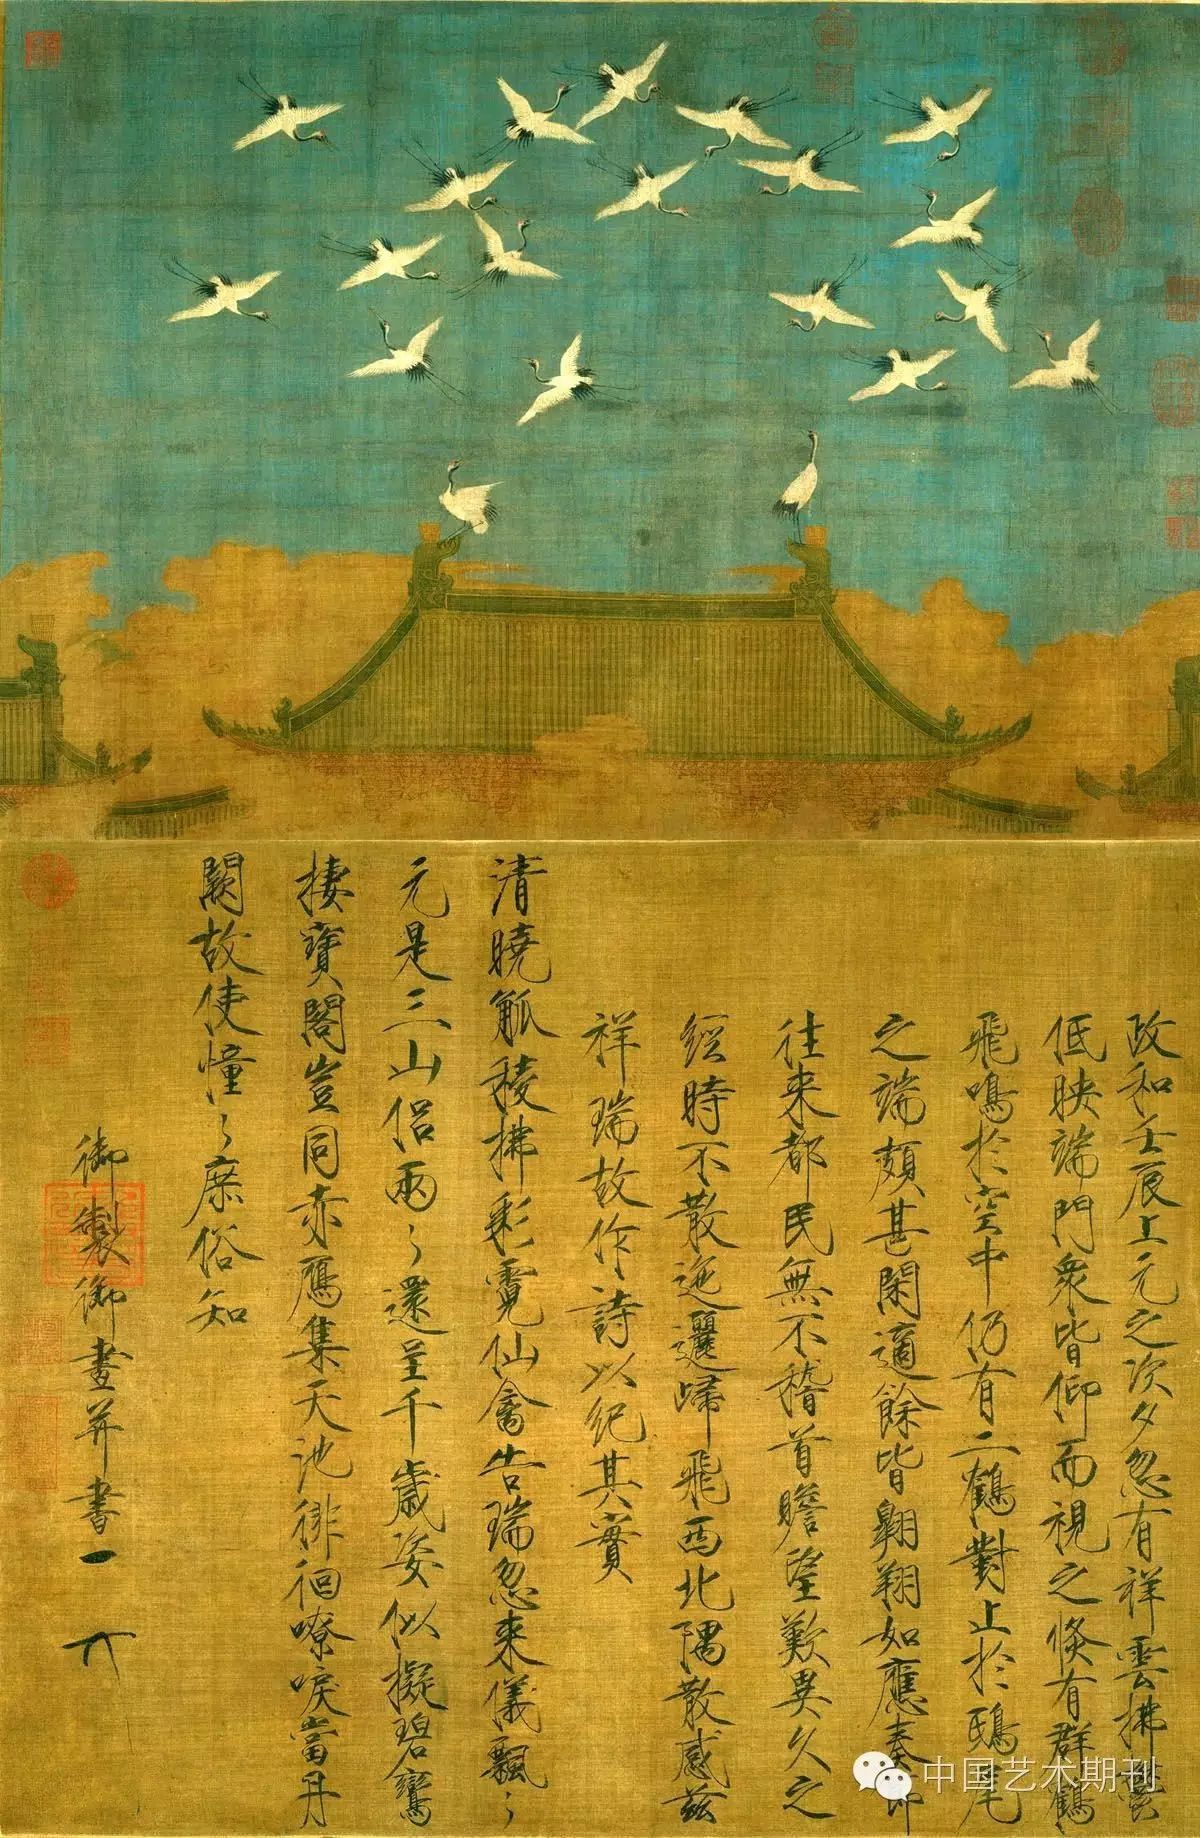 政和壬辰上元之次夕忽有祥雲拂鬱
低映端門衆皆仰而視之倐有群鶴
飛鳴於空中仍有二鶴對止於鴟尾
之端頗甚閑適餘皆翱翔如應奏節
往來都民無不稽首瞻望歎異久之
經時不散迤邐歸飛西北隅散感茲
祥瑞故作詩以紀其實
清曉觚稜拂彩霓仙禽告瑞忽來儀飄〻
元是三山侶兩〻還呈千歲姿似擬碧鸞
棲寶閣豈同赤鴈集天池徘徊嘹唳當丹
闕故使憧〻庶俗知
御製御畫并書
中国艺术期刊